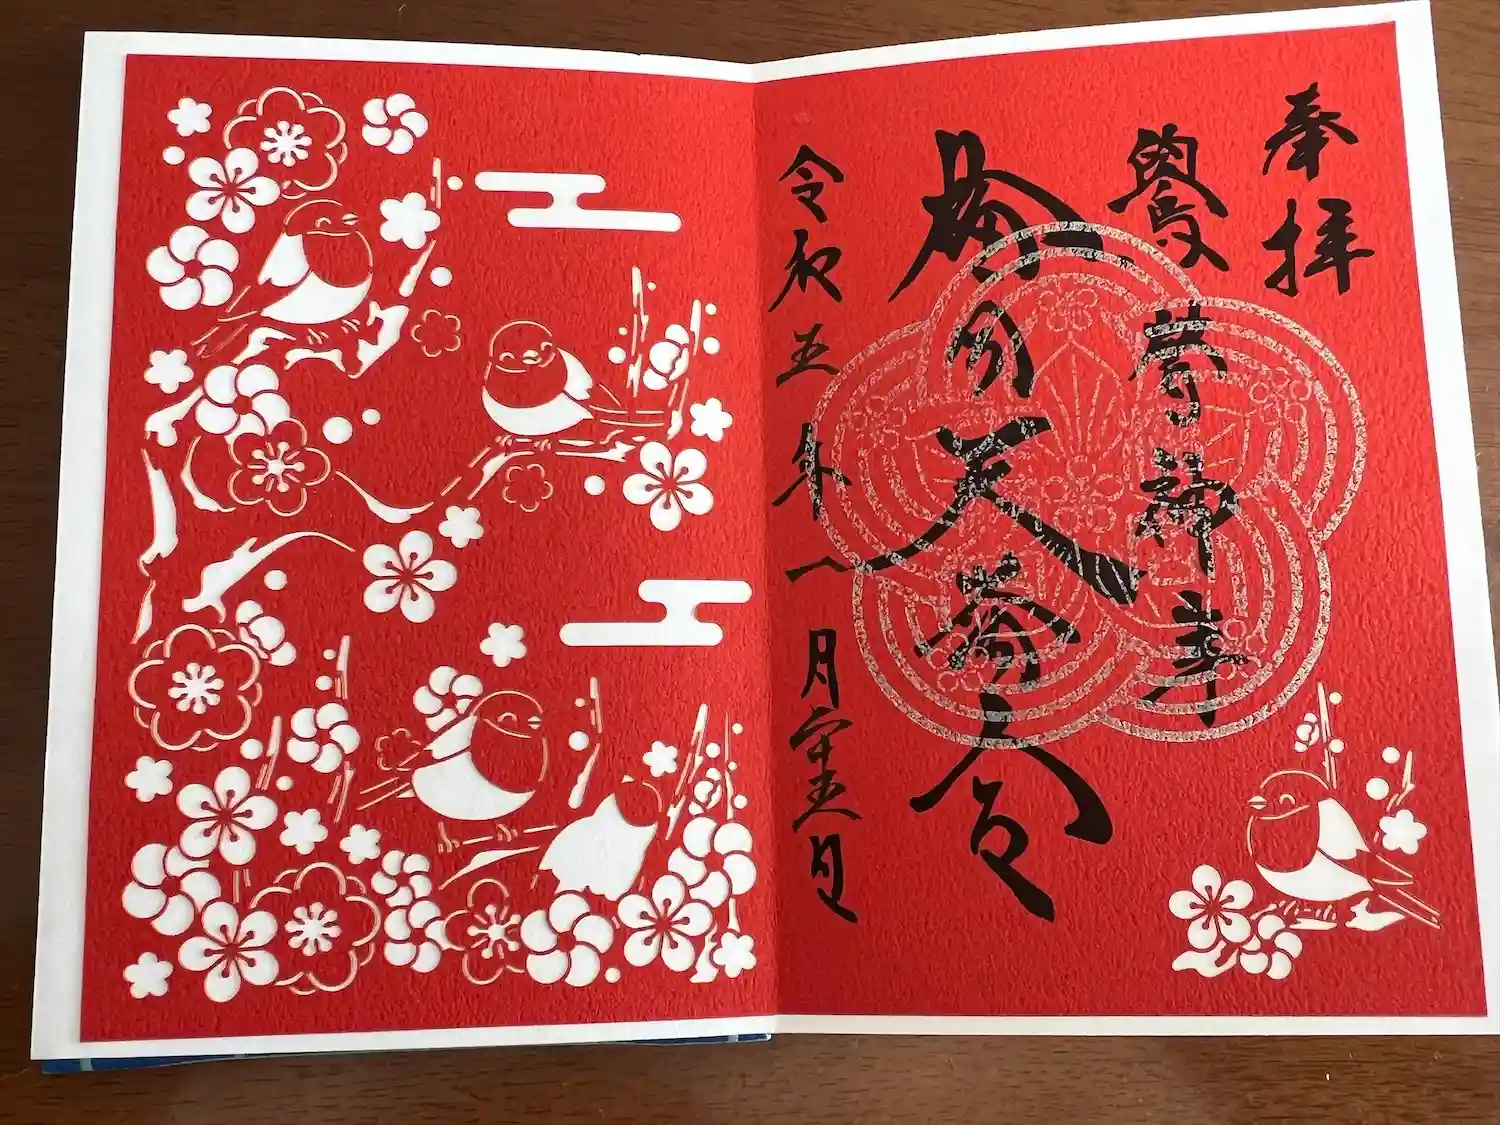 奉拝
鷽替神事
天満宮
令和五年一月廿五日